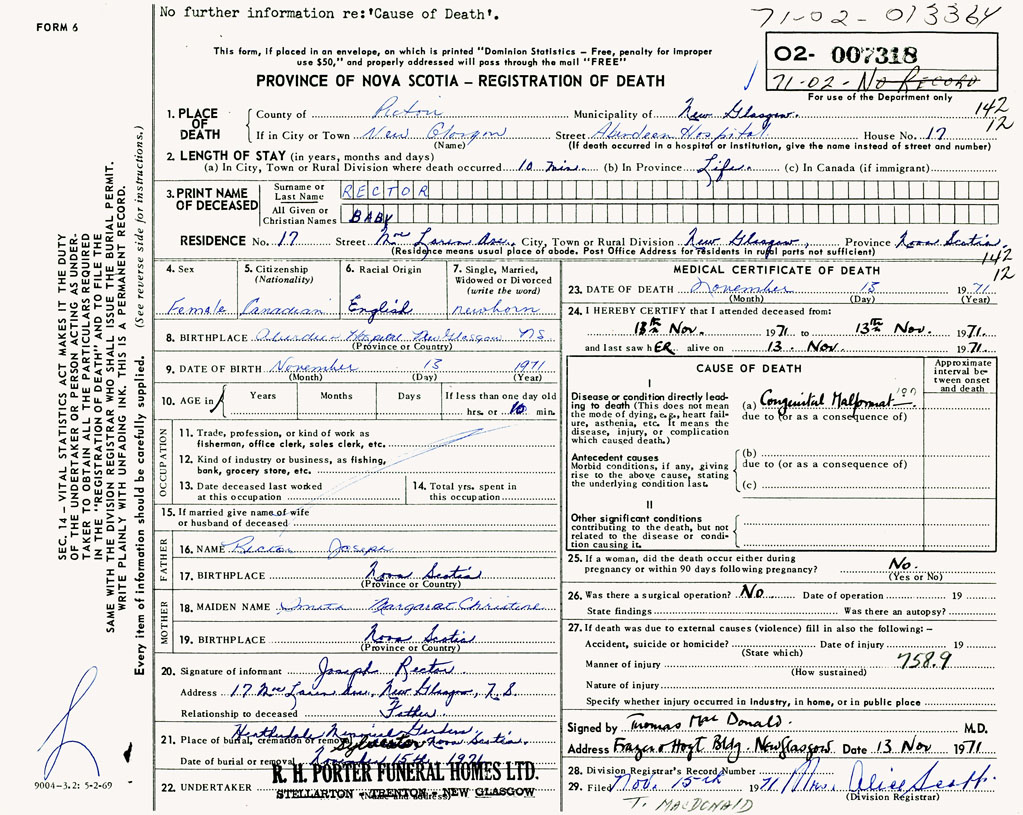 No further information re:'Cause of Death'.
71-02-013364
FORM 6
This form, if placed in an envelope, on which is printed "Dominion Statistics – Free, penalty for improper
use $50," and properly addressed will pass through the mail "FREE"
02- 007318
71-02-No Record
For use of the Department only
PROVINCE OF NOVA SCOTIA – REGISTRATION OF DEATH
142
12
1. PLACE OF DEATH
County of Pictou Municipality of New Glasgow.
If in City or Town New Glasgow Street Aberdeen Hospital House No. 17
(Name) (If death occurred in a hospital or institution, give the name instead of street and number)
2. LENGTH OF STAY (in years, months and days)
(a) In City, Town or Rural Division where death occurred 10 min. (b) In Province Life (c) In Canada (if immigrant)
3. PRINT NAME OF DECEASED
Surname or Last Name RECTOR
All Given or Christian Names BABY
RESIDENCE No. 17 Street MacLaren Ave. City, Town or Rural Division New Glasgow, Province Nova Scotia.
(Residence means usual place of abode. Post Office Address for residents in rural parts not sufficient)
142
12
4. Sex
Female
5. Citizenship (Nationality)
Canadian
6. Racial Origin
English
7. Single, Married, Widowed or Divorced (write the word)
newborn
8. BIRTHPLACE Aberdeen Hospital New Glasgow NS
(Province or Country)
9. DATE OF BIRTH November 13 1971
(Month) (Day) (Year)
10. AGE in Years Months Days If less than one day old
hrs. or 10 min.
OCCUPATION
11. Trade, profession, or kind of work as
fisherman, office clerk, sales clerk, etc.
12. Kind of industry or business, as fishing,
bank, grocery store, etc.
13. Date deceased last worked
at this occupation
14. Total yrs. spent in
this occupation
15. If married give name of wife
or husband of deceased
FATHER
16. NAME Rector Joseph
17. BIRTHPLACE Nova Scotia
(Province or Country)
MOTHER
18. MAIDEN NAME Margaret Christine
19. BIRTHPLACE Nova Scotia
(Province or Country)
20. Signature of informant Joseph Rector
Address 17 MacLaren Ave., New Glasgow, N.S.
Relationship to deceased Father
21. Place of burial, cremation or removal Heatherdale Memorial Gardens, Sylvester Nova Scotia.
Date of burial or removal November 15th 1971
22. UNDERTAKER
R. H. PORTER FUNERAL HOMES LTD.
STELLARTON – TRENTON – NEW GLASGOW
(Name and address)
MEDICAL CERTIFICATE OF DEATH
23. DATE OF DEATH November 13 1971
(Month) (Day) (Year)
24. I HEREBY CERTIFY that I attended deceased from:
13th Nov. 1971 to 13th Nov. 1971
and last saw hER alive on 13. Nov. 1971
CAUSE OF DEATH
Approximate interval between onset and death
I
Disease or condition directly leading to death (This does not
the mode of dying, e.g., heart failure, asthenia, etc. It means the
disease, injury, or complication
which caused death.)
(a) Congenital Malformation
due to (or as a consequence of)
Antecedent causes
Morbid conditions, if any, giving
rise to the above cause, stating
the underlying condition last.
(b)
due to (or as a consequence of)
(c)
II
Other significant conditions
contributing to the death, but not
related to the disease or condition causing it.
25. If a woman, did the death occur either during
pregnancy or within 90 days following pregnancy? No.
(Yes or No)
26. Was there a surgical operation? No. Date of operation 19
State findings Was there an autopsy?
27. If death was due to external causes (violence) fill in also the following: –
Accident, suicide or homicide? Date of injury 19
(State which)
758.9
Manner of injury
(How sustained)
Nature of injury
Specify whether injury occurred in industry, in home, or in public place
Signed by Thomas MacDonald. M.D.
Address Frazer & Hoyt Bldg. New Glasgow Date 13 Nov 1971
28. Division Registrar's Record Number
29. Filed Nov. 15th 1971 Mrs. Alice Scott
(Division Registrar)
T. MACDONALD
SEC. 14 – VITAL STATISTICS ACT MAKES IT THE DUTY
OF THE UNDERTAKER OR PERSON ACTING AS UNDER-
TAKER TO OBTAIN ALL THE PARTICULARS REQUIRED
IN THE "REGISTRATION OF DEATH" AND TO FILE THE
SAME WITH THE DIVISION REGISTRAR WHO SHALL ISSUE THE BURIAL PERMIT.
WRITE PLAINLY WITH UNFADING INK. THIS IS A PERMANENT RECORD.
Every item of information should be carefully supplied. (See reverse side for instructions.)
9004-3.2: 5-2-69